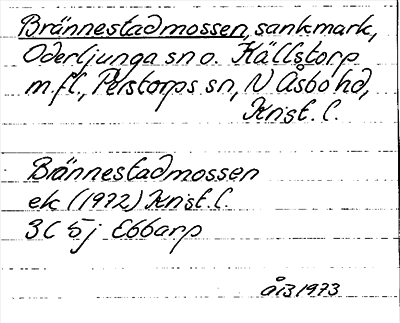 Brännestadmossen, sankmark,
Oderljunga sn o. Hällstorp
m.fl., Perstorps sn, N Åsbo hd,
Krist. l.
Brännestadmossen
ek (1972) Krist. l.
3C 5j Ebbarp
åi31973